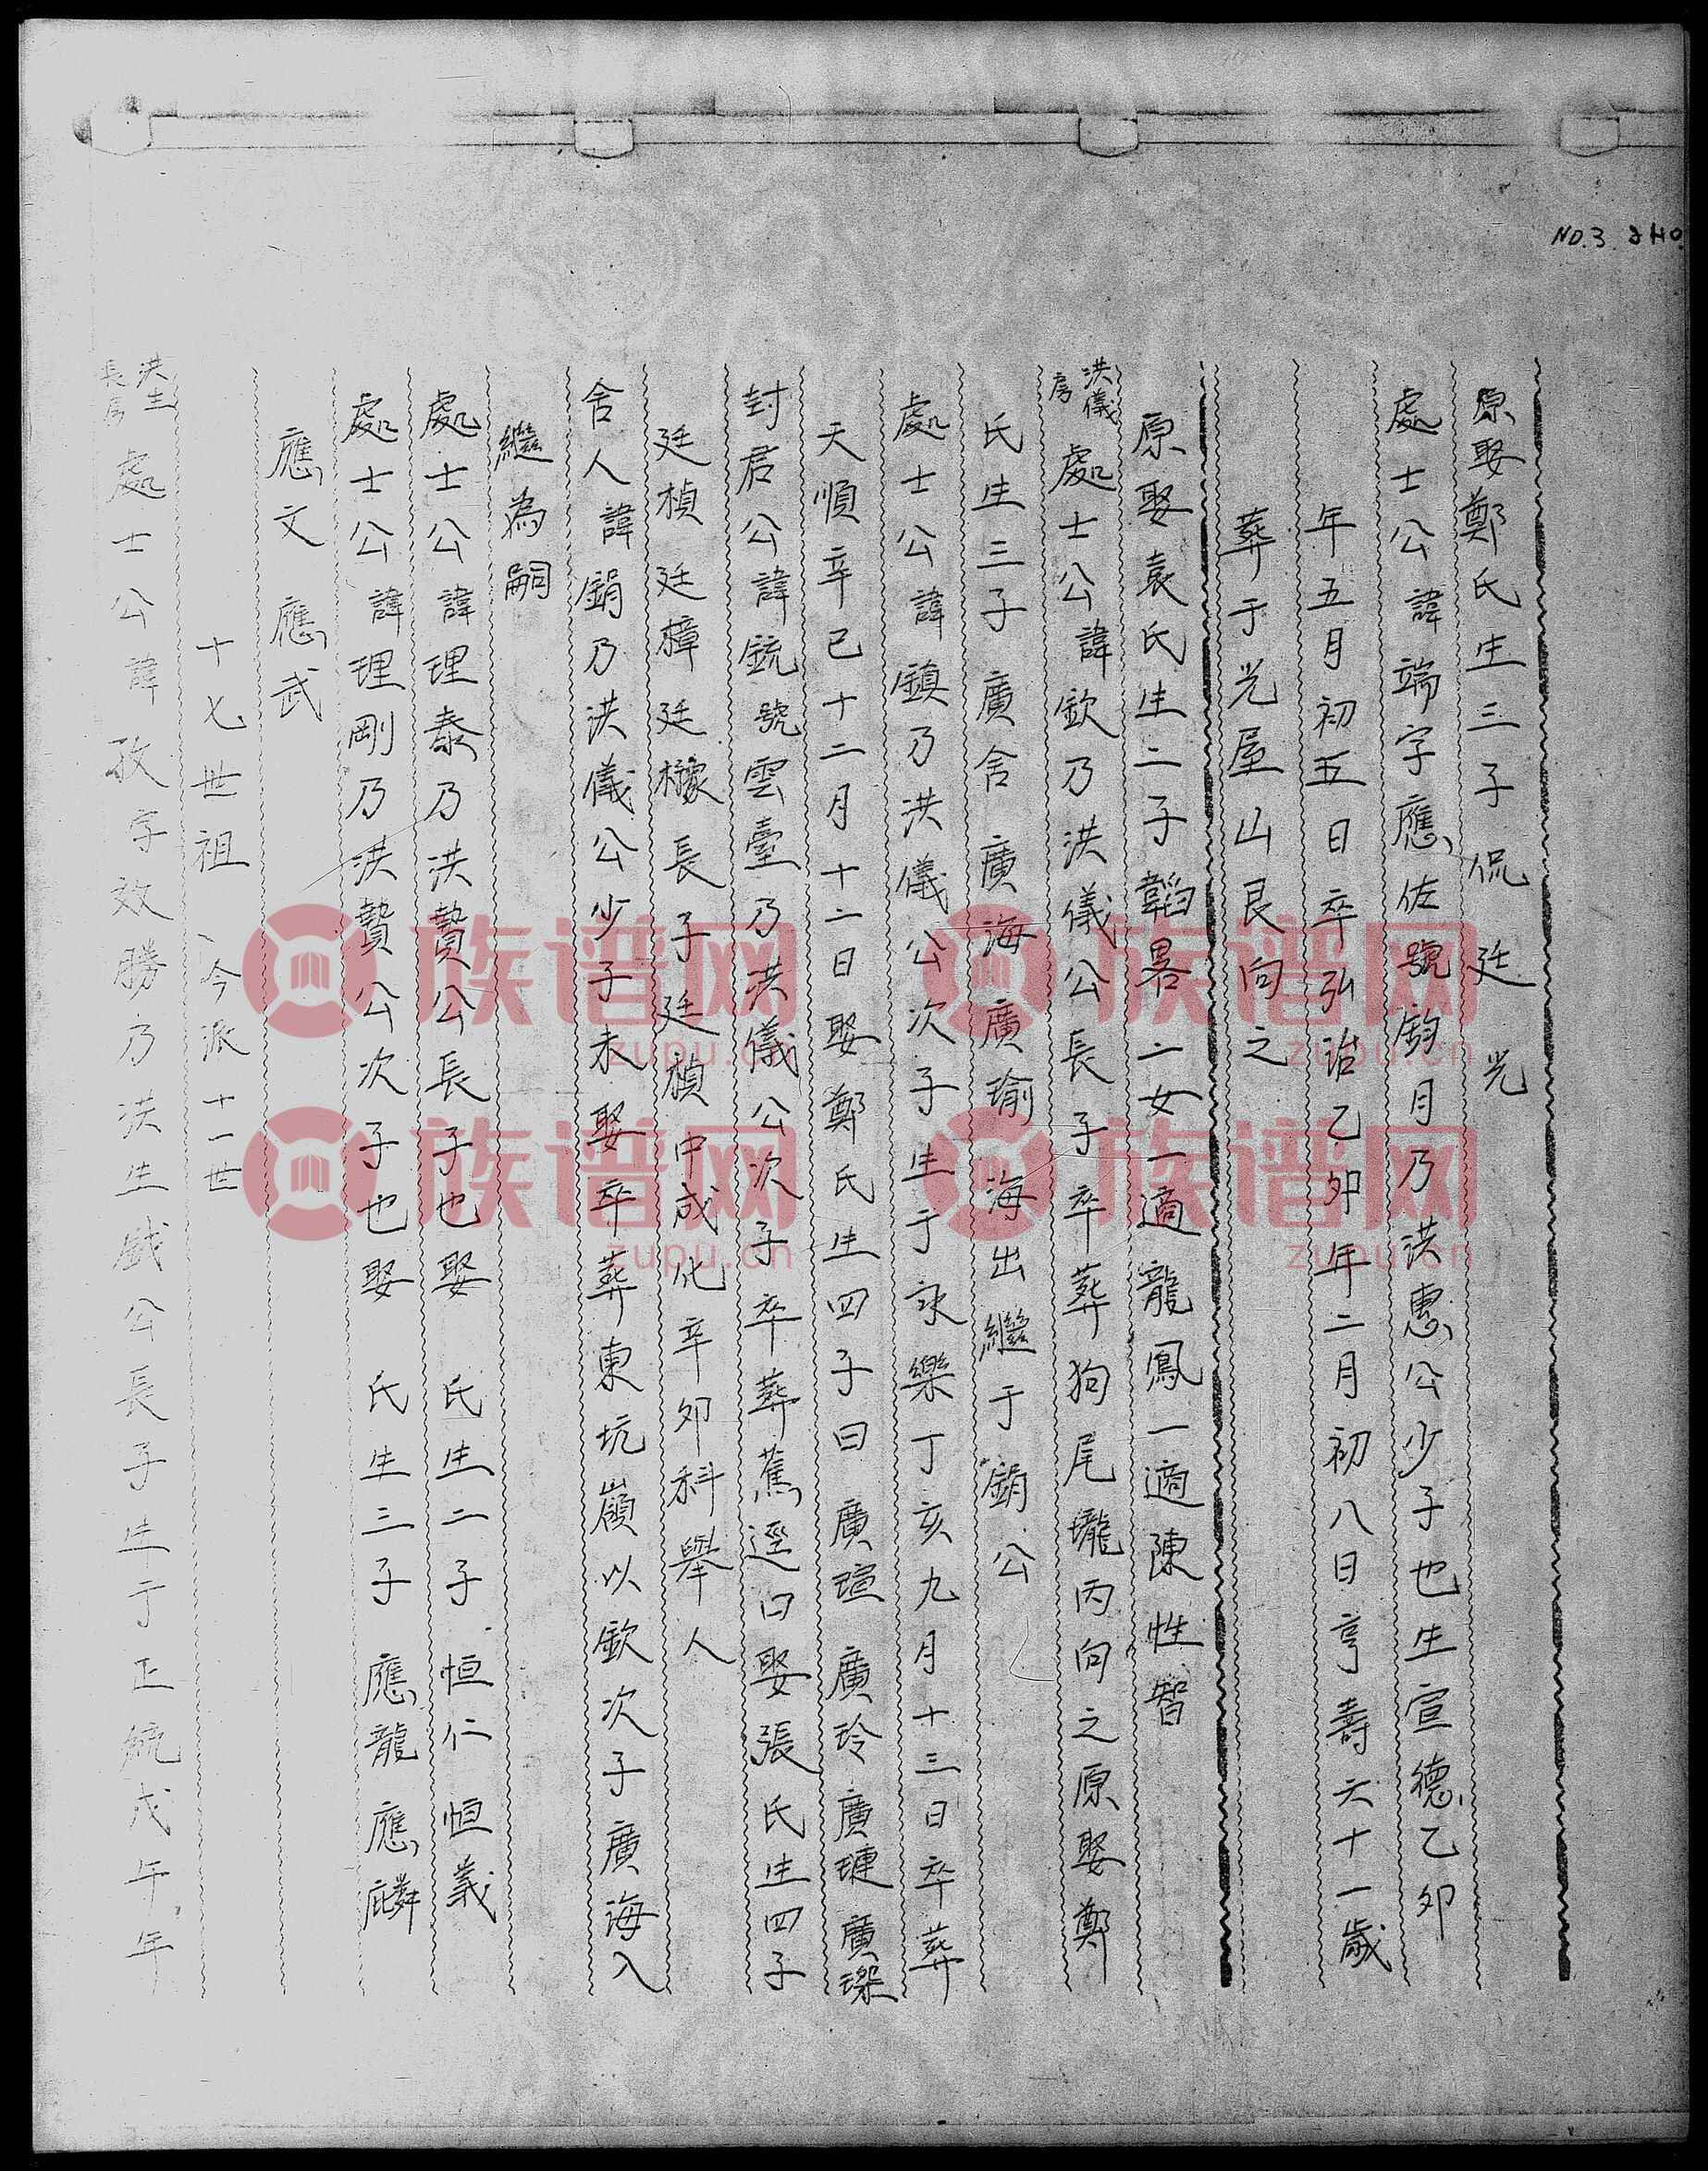 NO.3
原娶鄭氏生三子 侃 廷 光
處士公諱端字應佐號鈞月乃洪惠公少子也生宣德乙卯
年五月初五日卒弘治乙卯年二月初八日亨壽六十一歲
葬于光屋山艮向之
原娶袁氏生二子韜畧二女一適龍鳳一適陳性智
洪儀房 處士公諱欽乃洪儀公長子卒葬狗尾壠丙向之原娶鄭
氏生三子 廣舍 廣海 廣瑜 海出繼于鋗公
處士公諱鎮乃洪儀公次子生于永樂丁亥九月十三日卒葬
天順辛已十二月十二日娶鄭氏生四子曰 廣瑄 廣玲 廣璉 廣琛
封君公諱銃號雲臺乃洪儀公次子卒葬蕉逕口娶張氏生四子
廷楨 廷樟 廷櫞 長子廷楨中成化辛卯科舉人
舍人諱鋗乃洪儀公少子未娶卒葬東坑嶺以欽次子廣海入
繼為嗣
處士公諱理泰乃洪贊公長子也娶 氏生二子 恒仁 恒義
處士公諱理剛乃洪贊公次子也娶 氏生三子 應龍 應麟
應文 應武
十七世祖、今派十一世
洪生長房 處士公諱孜字效勝乃洪生戧公長子生于正統戊午年
族谱网
zupu.cn
族谱网
zupu.cn
族谱网
zupu.cn
族谱网
zupu.cn